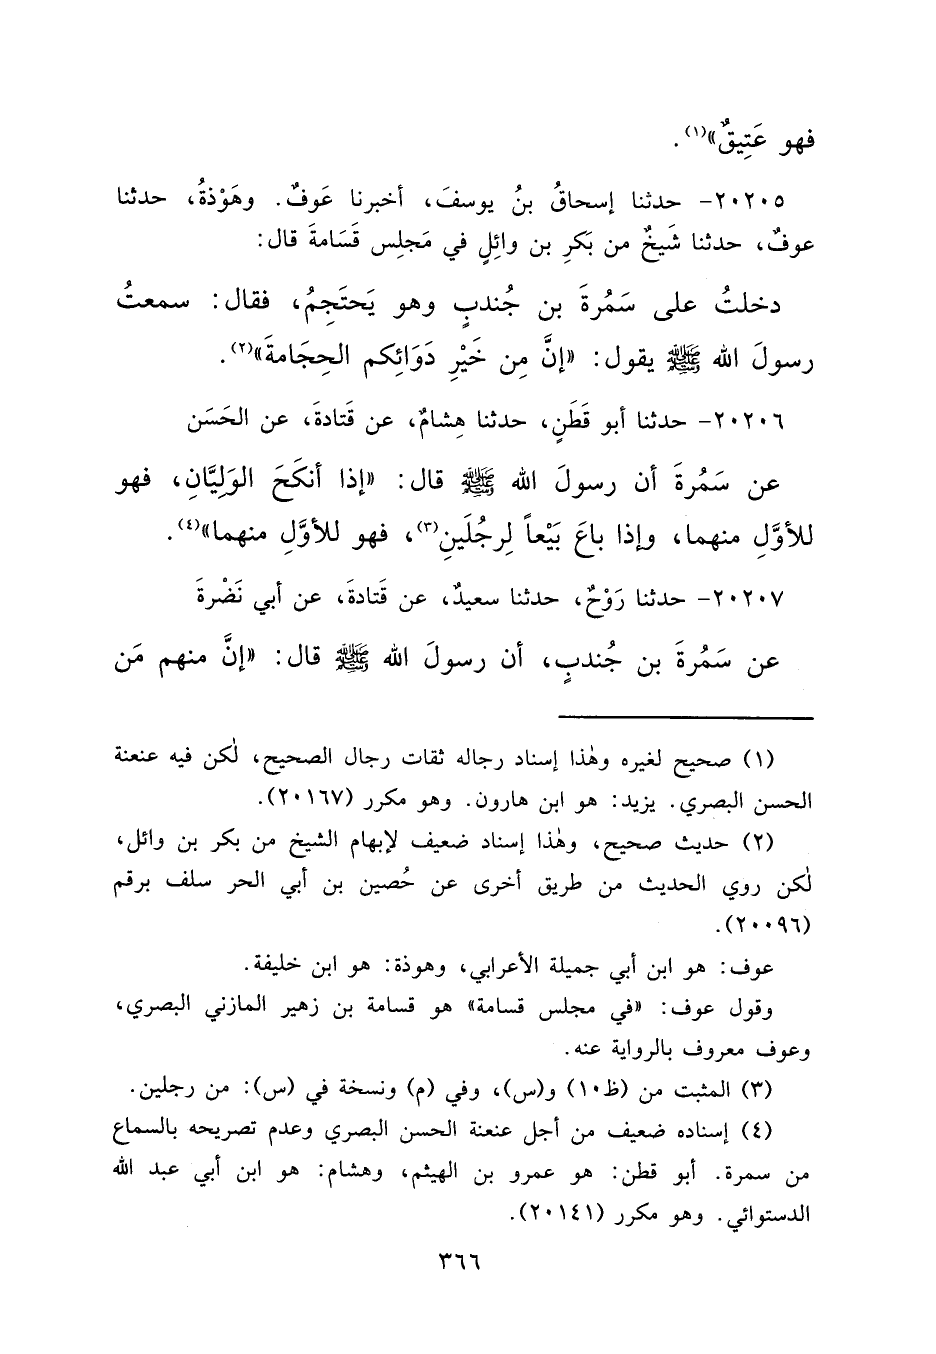 فهو عَتِيقٌ»(١).
٢٠٢٠٥- حدثنا إسحاقُ بنُ يوسفَ، أخبرنا عَوفٌ. وهَوْذةُ، حدثنا
عوفٌ، حدثنا شَيخٌ من بَكرِ بن وائلٍ في مَجلِس قَسَامةَ قال:
دخلتُ على سَمُرةَ بن جُندبٍ وهو يَحتَجِمُ، فقال: سمعتُ
رسولَ الله ﷺ يقول: «إنَّ مِن خَيْرِ دَوَائِكم الحِجَامةَ»(٢).
٢٠٢٠٦- حدثنا أبو قَطَنٍ، حدثنا هِشامٌ، عن قَتادةَ، عن الحَسَن
عن سَمُرةَ أن رسولَ الله ﷺ قال: «إذا أنكَحَ الوَلِيَّانِ، فهو
للأوَّلِ منهما، وإذا باعَ بَيْعاً لِرجُلَينِ(٣)، فهو للأوَّلِ منهما»(٤).
٢٠٢٠٧- حدثنا رَوْحٌ، حدثنا سعيدٌ، عن قَتادةَ، عن أبي نَضْرةَ
عن سَمُرةَ بن جُندبٍ، أن رسولَ الله ﷺ قال: «إنَّ منهم مَن
(١) صحيح لغيره وهٰذا إسناد رجاله ثقات رجال الصحيح، لٰكن فيه عنعنة
الحسن البصري. يزيد: هو ابن هارون. وهو مكرر (٢٠١٦٧).
(٢) حديث صحيح، وهٰذا إسناد ضعيف لإبهام الشيخ من بكر بن وائل،
لٰكن روي الحديث من طريق أخرى عن حُصين بن أبي الحر سلف برقم
(٢٠٠٩٦).
عوف: هو ابن أبي جميلة الأعرابي، وهوذة: هو ابن خليفة.
وقول عوف: «في مجلس قسامة» هو قسامة بن زهير المازني البصري،
وعوف معروف بالرواية عنه.
(٣) المثبت من (ظ١٠) و(س)، وفي (م) ونسخة في (س): من رجلين.
(٤) إسناده ضعيف من أجل عنعنة الحسن البصري وعدم تصريحه بالسماع
من سمرة. أبو قطن: هو عمرو بن الهيثم، وهشام: هو ابن أبي عبد الله
الدستوائي. وهو مكرر (٢٠١٤١).
٣٦٦